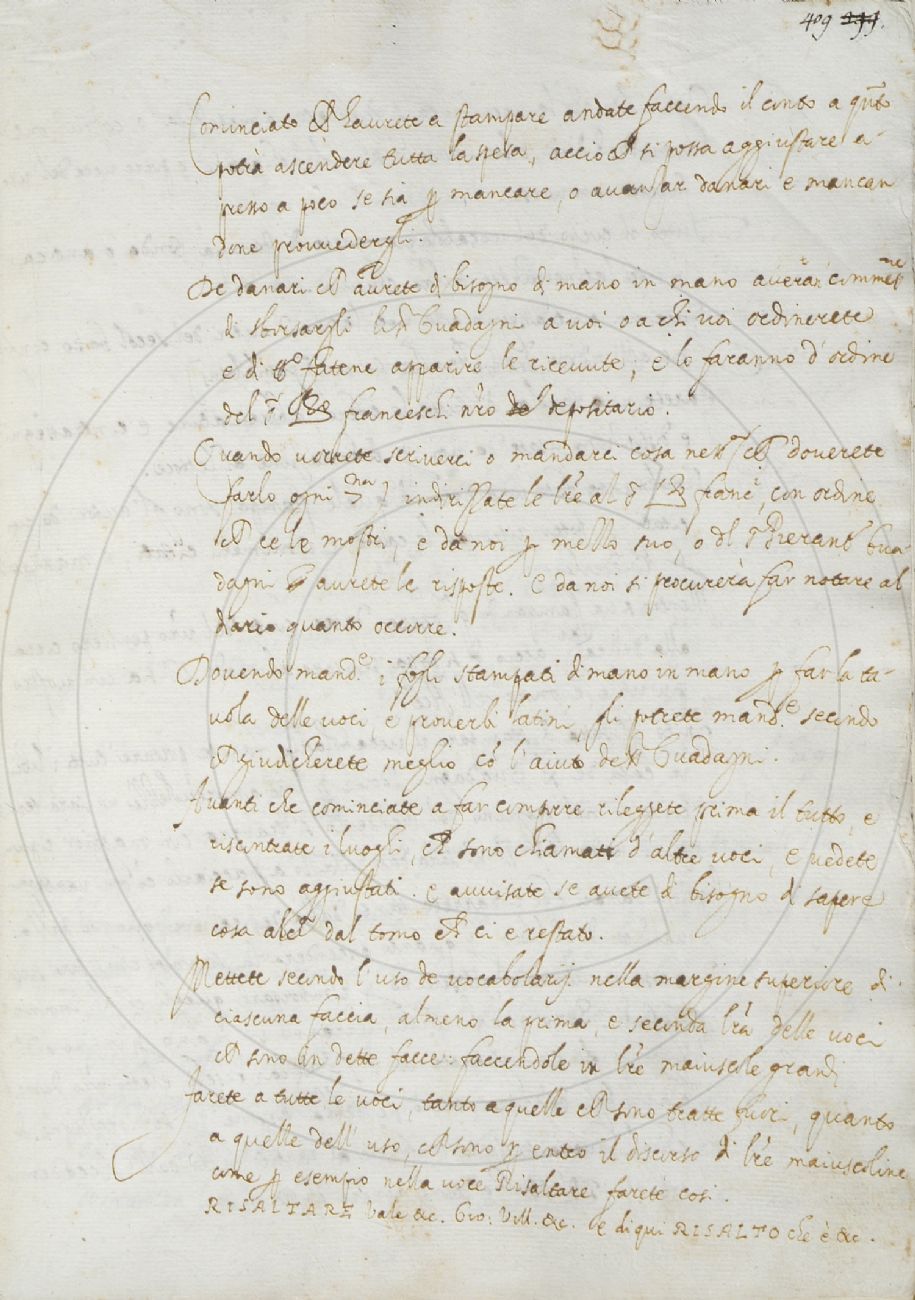 409 299.
Cominciato ch' l'aurete a stampare andate faccendo il conto a quto
potrà ascendere tutta la spesa, acciò ch' si possa aggiustare a-
presso a poco se sia p mancare, o auanzar danari e mancan
done prouuedergli.
De danari ch' aurete di bisogno di mano in mano
di sborsargli li Sri Guadagni a uoi o a chi uoi ordinerete
e di tto fatene apparire le riceuute, e lo faranno d'ordine
del Sr franceschi nro depositario.
Quando uorrete scriverci o mandarci cosa ness.a ch' douerete
farlo ogni indirizzate le lre al Sr franc.i, con ordine
ch' ce le mostri, e da noi p mezzo suo, o dl Sr Pierant.o Gua-
dagni aurete le risposte. E da noi si procurerà far notare al
diario quanto occorre.
Douendo mand.e i fogli stampati di mano in mano p far la ta-
uola delle uoci e prouerbi latini, gli potrete mand.e secondo
ch' giudicherete meglio cō l'aiuto de Sri Guadagni.
Auanti che cominciate a far comporre rileggete prima il tutto, e
riscontrate i luoghi, ch' sono chiamati d'altre uoci, e uedete
se sono aggiustati. e auuisate se auete di bisogno di sapere
cosa alc.a dal tomo ch' ci e restato.
Mettete secondo l'uso de uocabolarij nella margine superiore di
ciascuna faccia, almeno la prima, e seconda lra delle uoci
ch' sono in dette facce: faccendole in lre maiuscole grandi
farete a tutte le uoci, tanto a quelle ch' sono tratte fuori, quanto
a quelle dell'uso, ch' sono p entro il discorso di lre maiuscoline
come p esempio nella uoce Risaltare farete cosi.
RISALTARE Vale &c. Gio: Vill. &c. e di qui RISALTO che è &c.